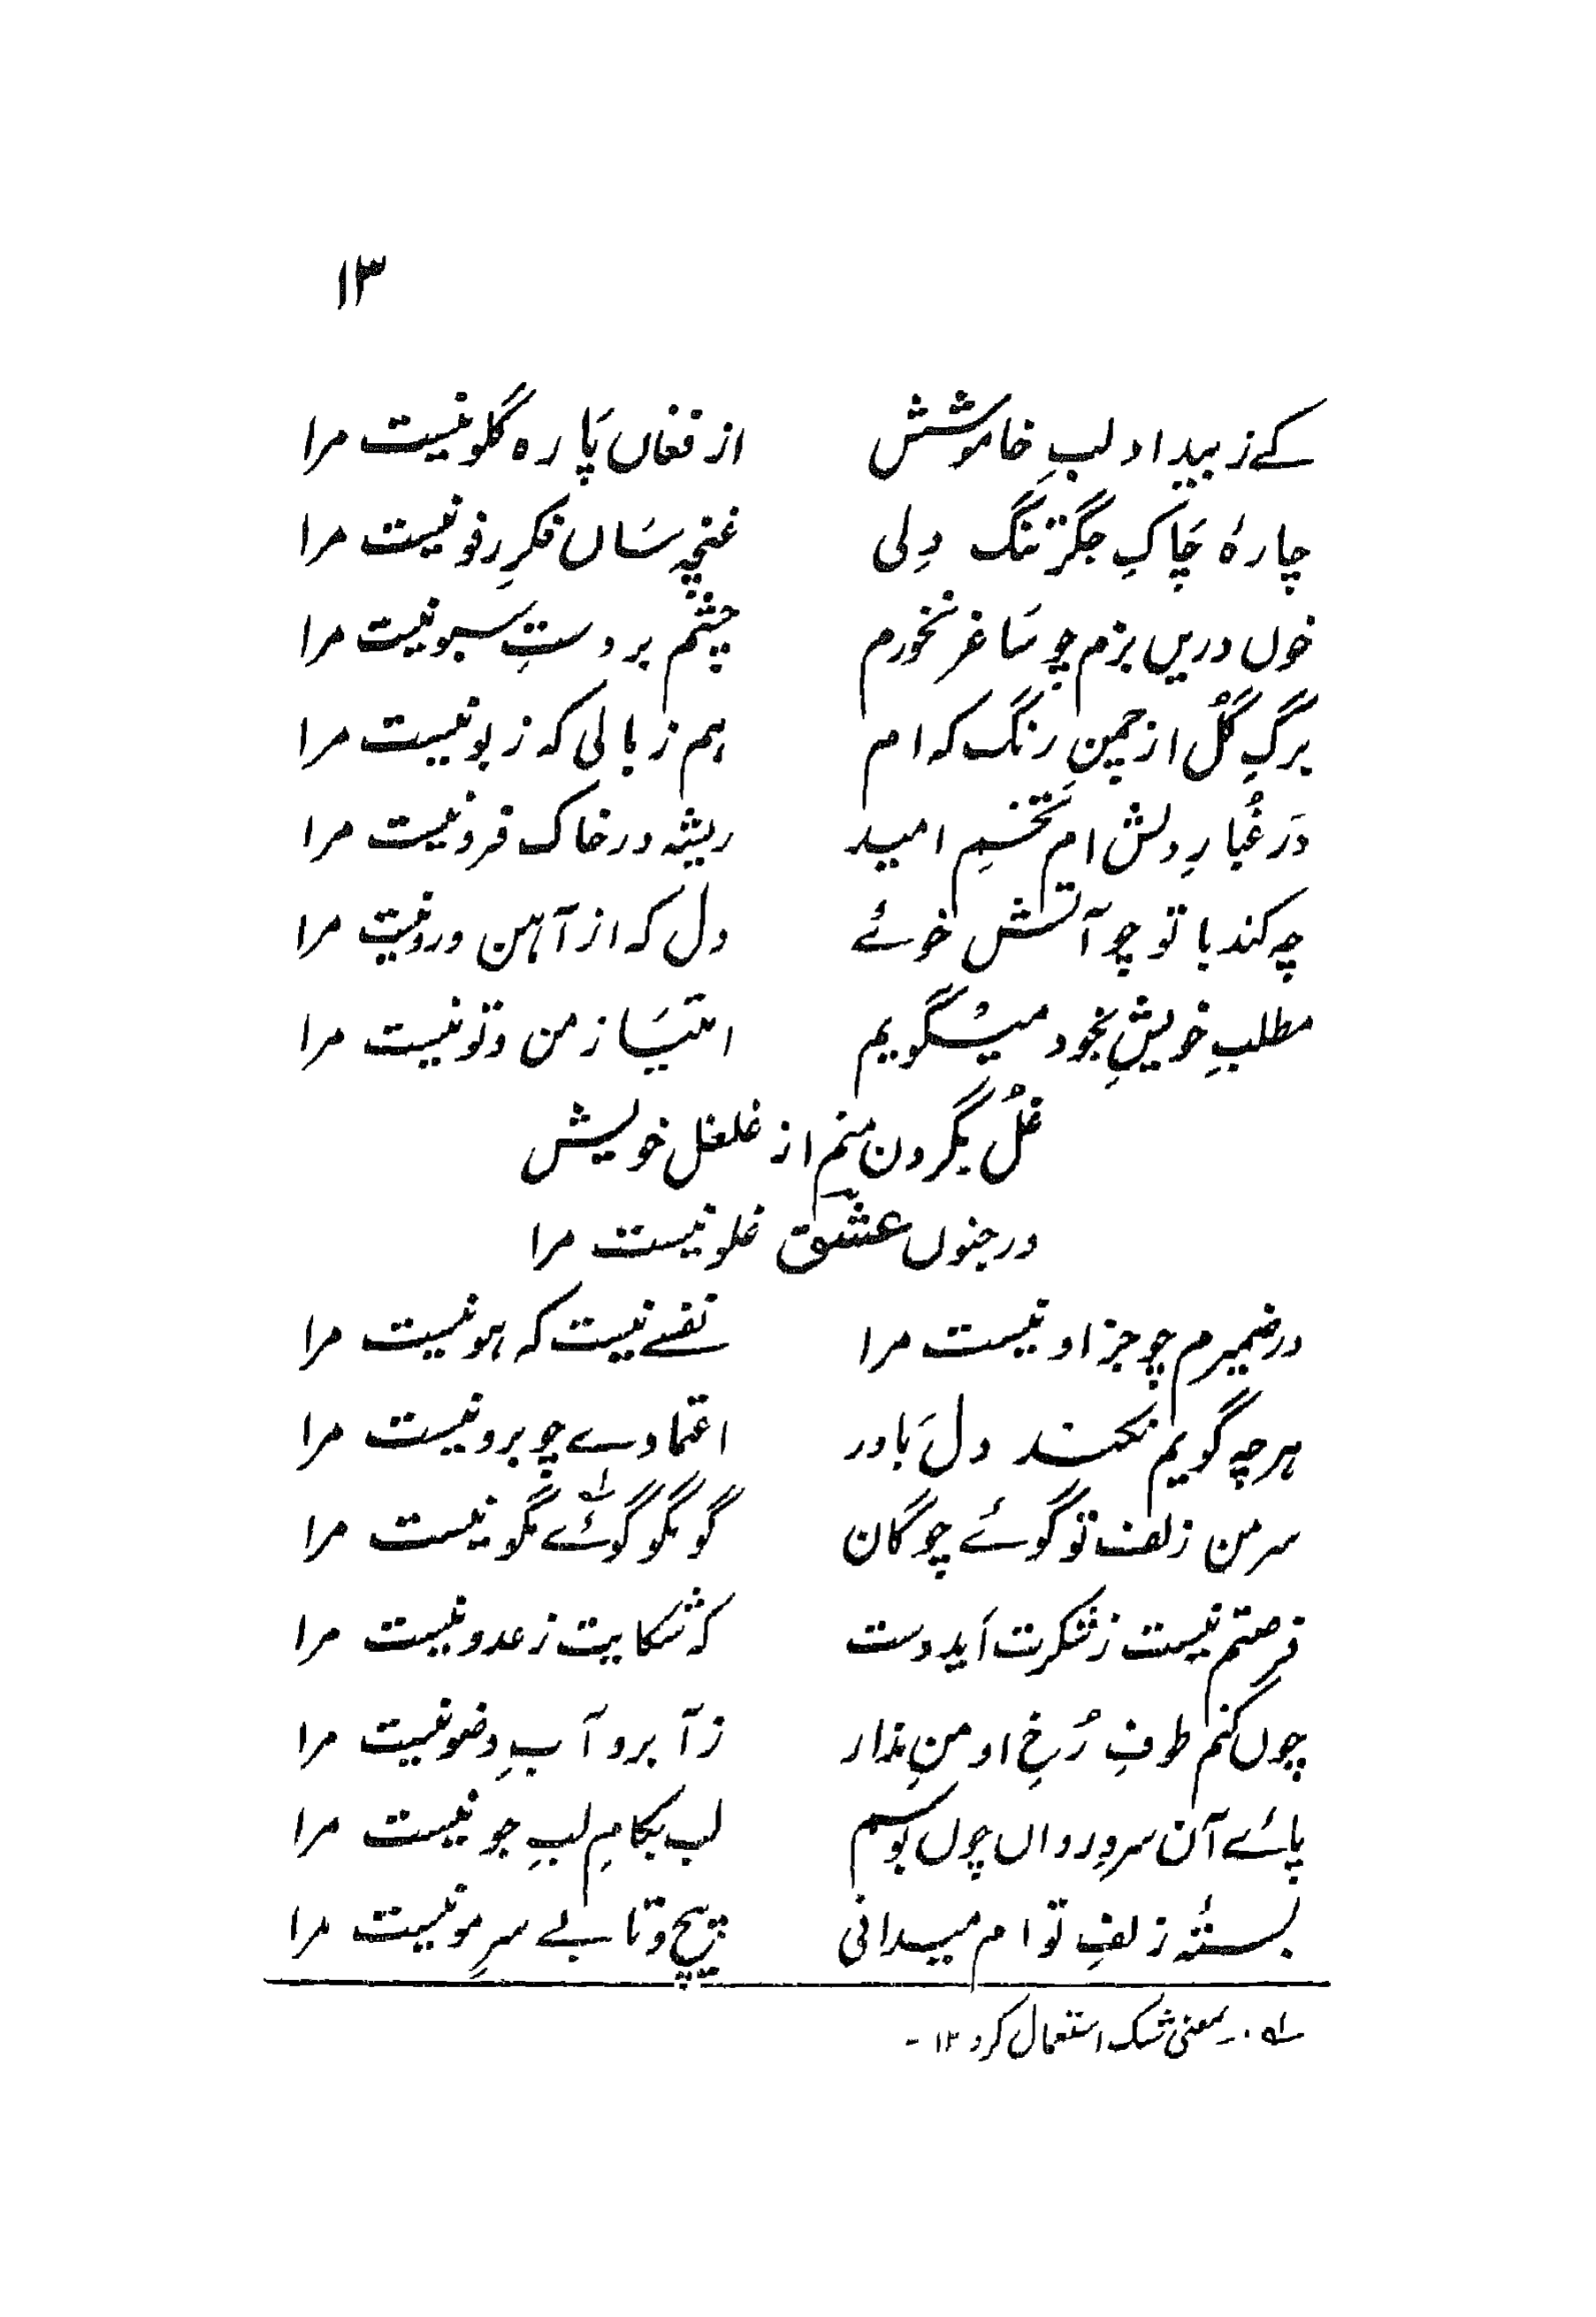 ۱۳
کے ز بیداد لبِ خاموشش از فغاں پَارہ گلو نیست مرا
چارۂ چَاکِ جگر تنگ دِلی غنچہ سَاں فکرِ رفو نیست مرا
خوں دریں بزم چو سَاغر نخورم چشم بر دستِ سبو نیست مرا
برگِ گُل از چمنِ رنگ کہ ام ہم زبانی کہ ز بو نیست مرا
دَر غُبارِ دلش ام تخمِ امید ریشہ در خاک فرو نیست مرا
چہ کند با تو چو آتش خوئے دل کہ از آہن و رو نیست مرا
مطلبِ خویشِ بخود میگویم امتیَاز من و تو نیست مرا
غُل بگردن منم از غلغل خویش
در جنوں عشق غلو نیست مرا
در ضمیرم چو جز او نیست مرا نفسے نیست کہ ہو نیست مرا
ہرچہ گویم نکند دل بَاور اعتمادے چو برو نیست مرا
سر من زلف تو گوئے چوگان گو مگو گوئے لہ مگو نیست مرا
فرصتم نیست ز شکرت اَید وست کہ شکایت ز عدو نیست مرا
چوں کنم طوفِ رُخِ او منِ نذار ز آبرو آبِ وضو نیست مرا
پائے آن سروِ رواں چوں بوسم لب بکامِ لبِ جو نیست مرا
بستۂ زلفِ تو ام میدانی پیچ و تابے سرِ مو نیست مرا
لہ. بمعنی شک استعمال کرد ۱۲-